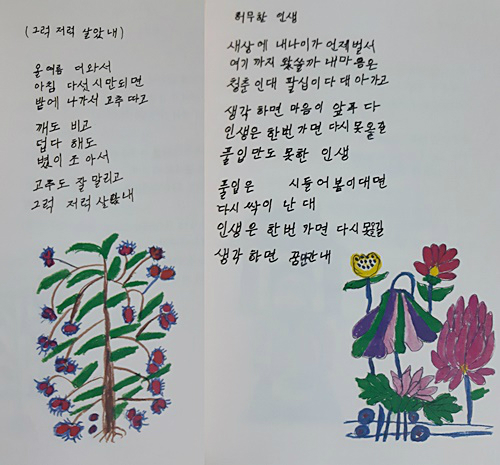 (그럭 저럭 살았내)
올여름 더와서
아침 다섯시만되면
밭에 나가서 고추 따고
깨도 비고
덥다 해도
볓이 조아서
고추도 잘 말리고
그럭 저럭 살았내
허무한 인생
새상에 내나이가 언제벌서
여기까지 왔쓸까 내마음은
청춘인대 팔십이 다 대 아가고
생각 하면 마음이 앞푸다
인생은 한번 가면 다시 못올길
풀입만도 못한 인생
풀입은 시들어 봄이대면
다시 싹이 난 대
인생은 한번 가면 다시 못올길
생각 하면 꿈만갔내